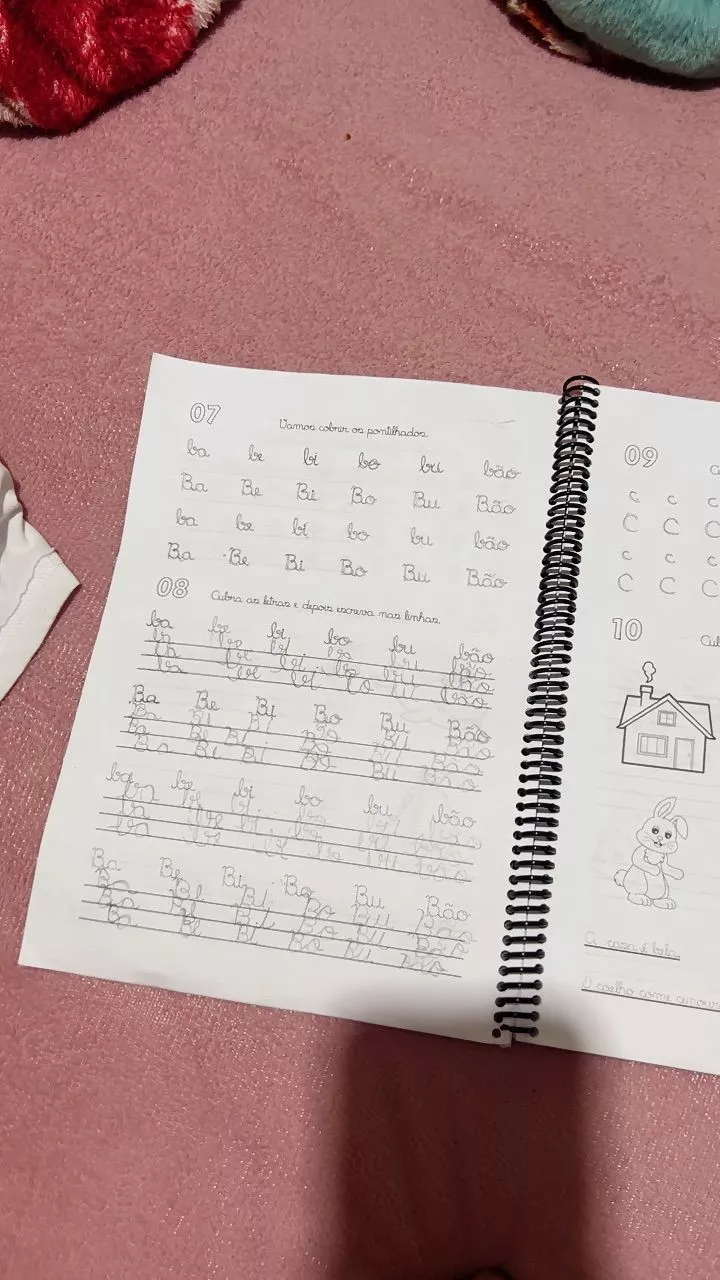 07
Vamos cobrir os pontilhados
ba be bi bo bu bão
Ba Be Bi Bo Bu Bão
ba be bi bo bu bão
Ba Be Bi Bo Bu Bão
08
Cubra as letras e depois escreva nas linhas
ba be bi bo bu bão
ba be bi bo bu bão
ba be bi bo bu bão
Ba Be Bi Bo Bu Bão
Ba Be Bi Bo Bu Bão
Ba Be Bi Bo Bu Bão
ba be bi bo bu bão
ba be bi bo bu bão
ba be bi bo bu bão
Ba Be Bi Bo Bu Bão
Ba Be Bi Bo Bu Bão
Ba Be Bi Bo Bu Bão
09
c c c
C C C
c c c
C C C
10
A casa é bela
O coelho come